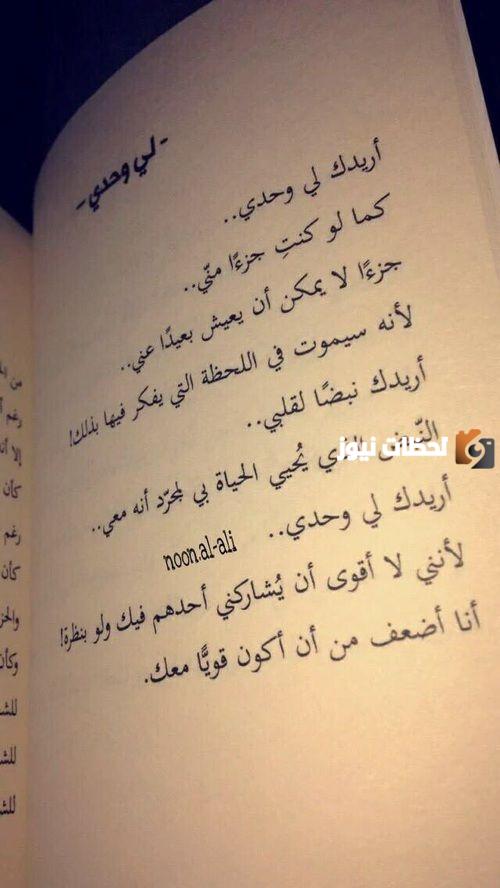 - لي وحدي -
أريدك لي وحدي..
كما لو كنتِ جزءًا منّي..
جزءًا لا يمكن أن يعيش بعيدًا عني..
لأنه سيموت في اللحظة التي يفكر فيها بذلك!
أريدك نبضًا لقلبي..
النّبض الذي يُحيي الحياة بي لمجرّد أنه معي..
لحظات نيوز
أريدك لي وحدي..
noon.al-ali
لأنني لا أقوى أن يُشاركني أحدهم فيك ولو بنظرة!
أنا أضعف من أن أكون قويًّا معك.
رغم
كأن
رغم
كأن
وكأن